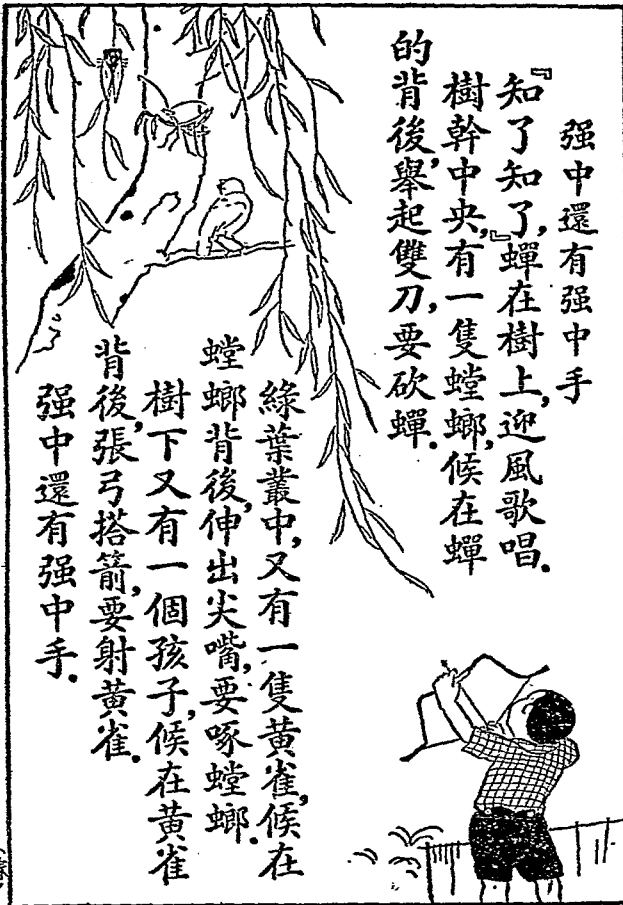 强中還有强中手
『知了知了,』蟬在樹上,迎風歌唱.
樹幹中央,有一隻螳螂,候在蟬
的背後,舉起雙刀,要砍蟬.
綠葉叢中,又有一隻黃雀,候在
螳螂背後,伸出尖嘴,要啄螳螂.
樹下又有一個孩子,候在黃雀
背後,張弓搭箭,要射黃雀.
强中還有强中手.